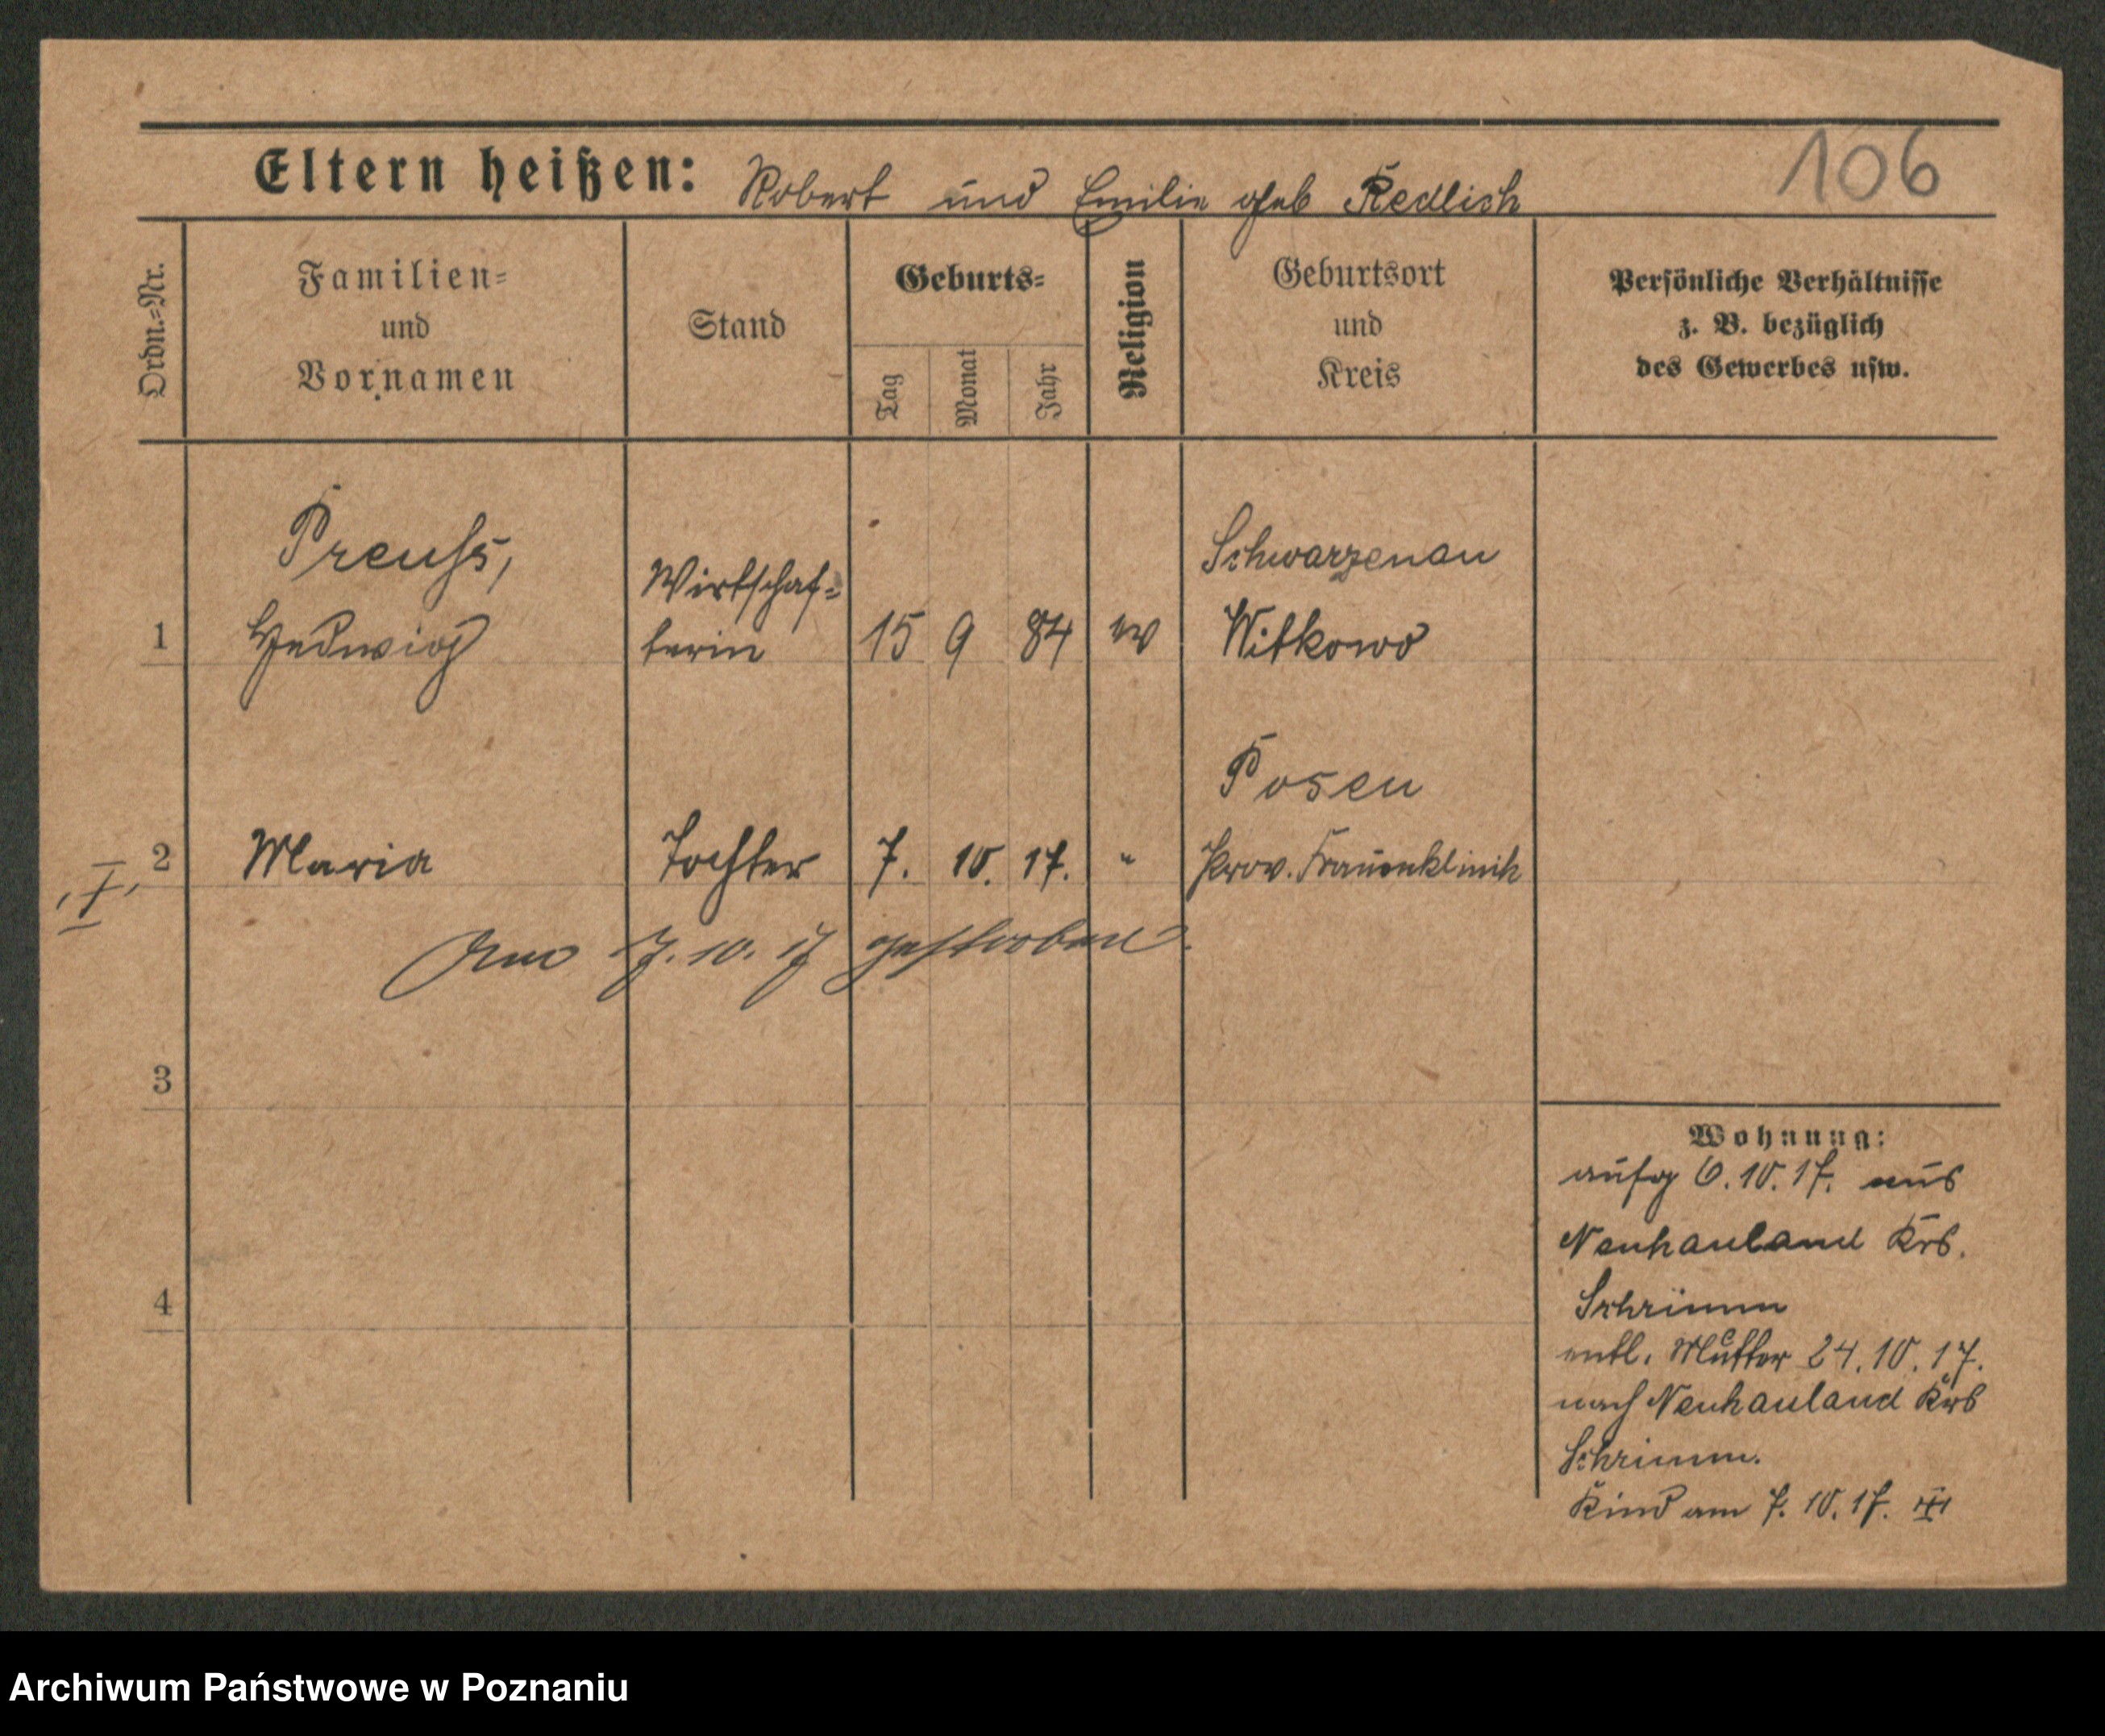 106
Eltern heißen: Robert und Emilie geb Redlich
Ordn.=Nr.
Familien=
und
Vornamen
Stand
Geburts=
Tag
Monat
Jahr
Religion
Geburtsort
und
Kreis
Persönliche Verhältnisse
z. B. bezüglich
des Gewerbes usw.
1
Preuss,
Hedwig
Wirtschaf=
terin
15 9 84 ev
Schwarzenau
Witkowo
2
Maria Tochter 7. 10. 17. "
Posen
Prov. Frauenklinik
Am 7. 10. 17 gestorben.
3
4
Wohnung:
aufg 6.10.17. aus
Neuhauland Krs.
Schrimm
entl. Mutter 24.10.17.
nach Neuhauland Krs
Schrimm.
Kind am 7. 10. 17.
Archiwum Państwowe w Poznaniu